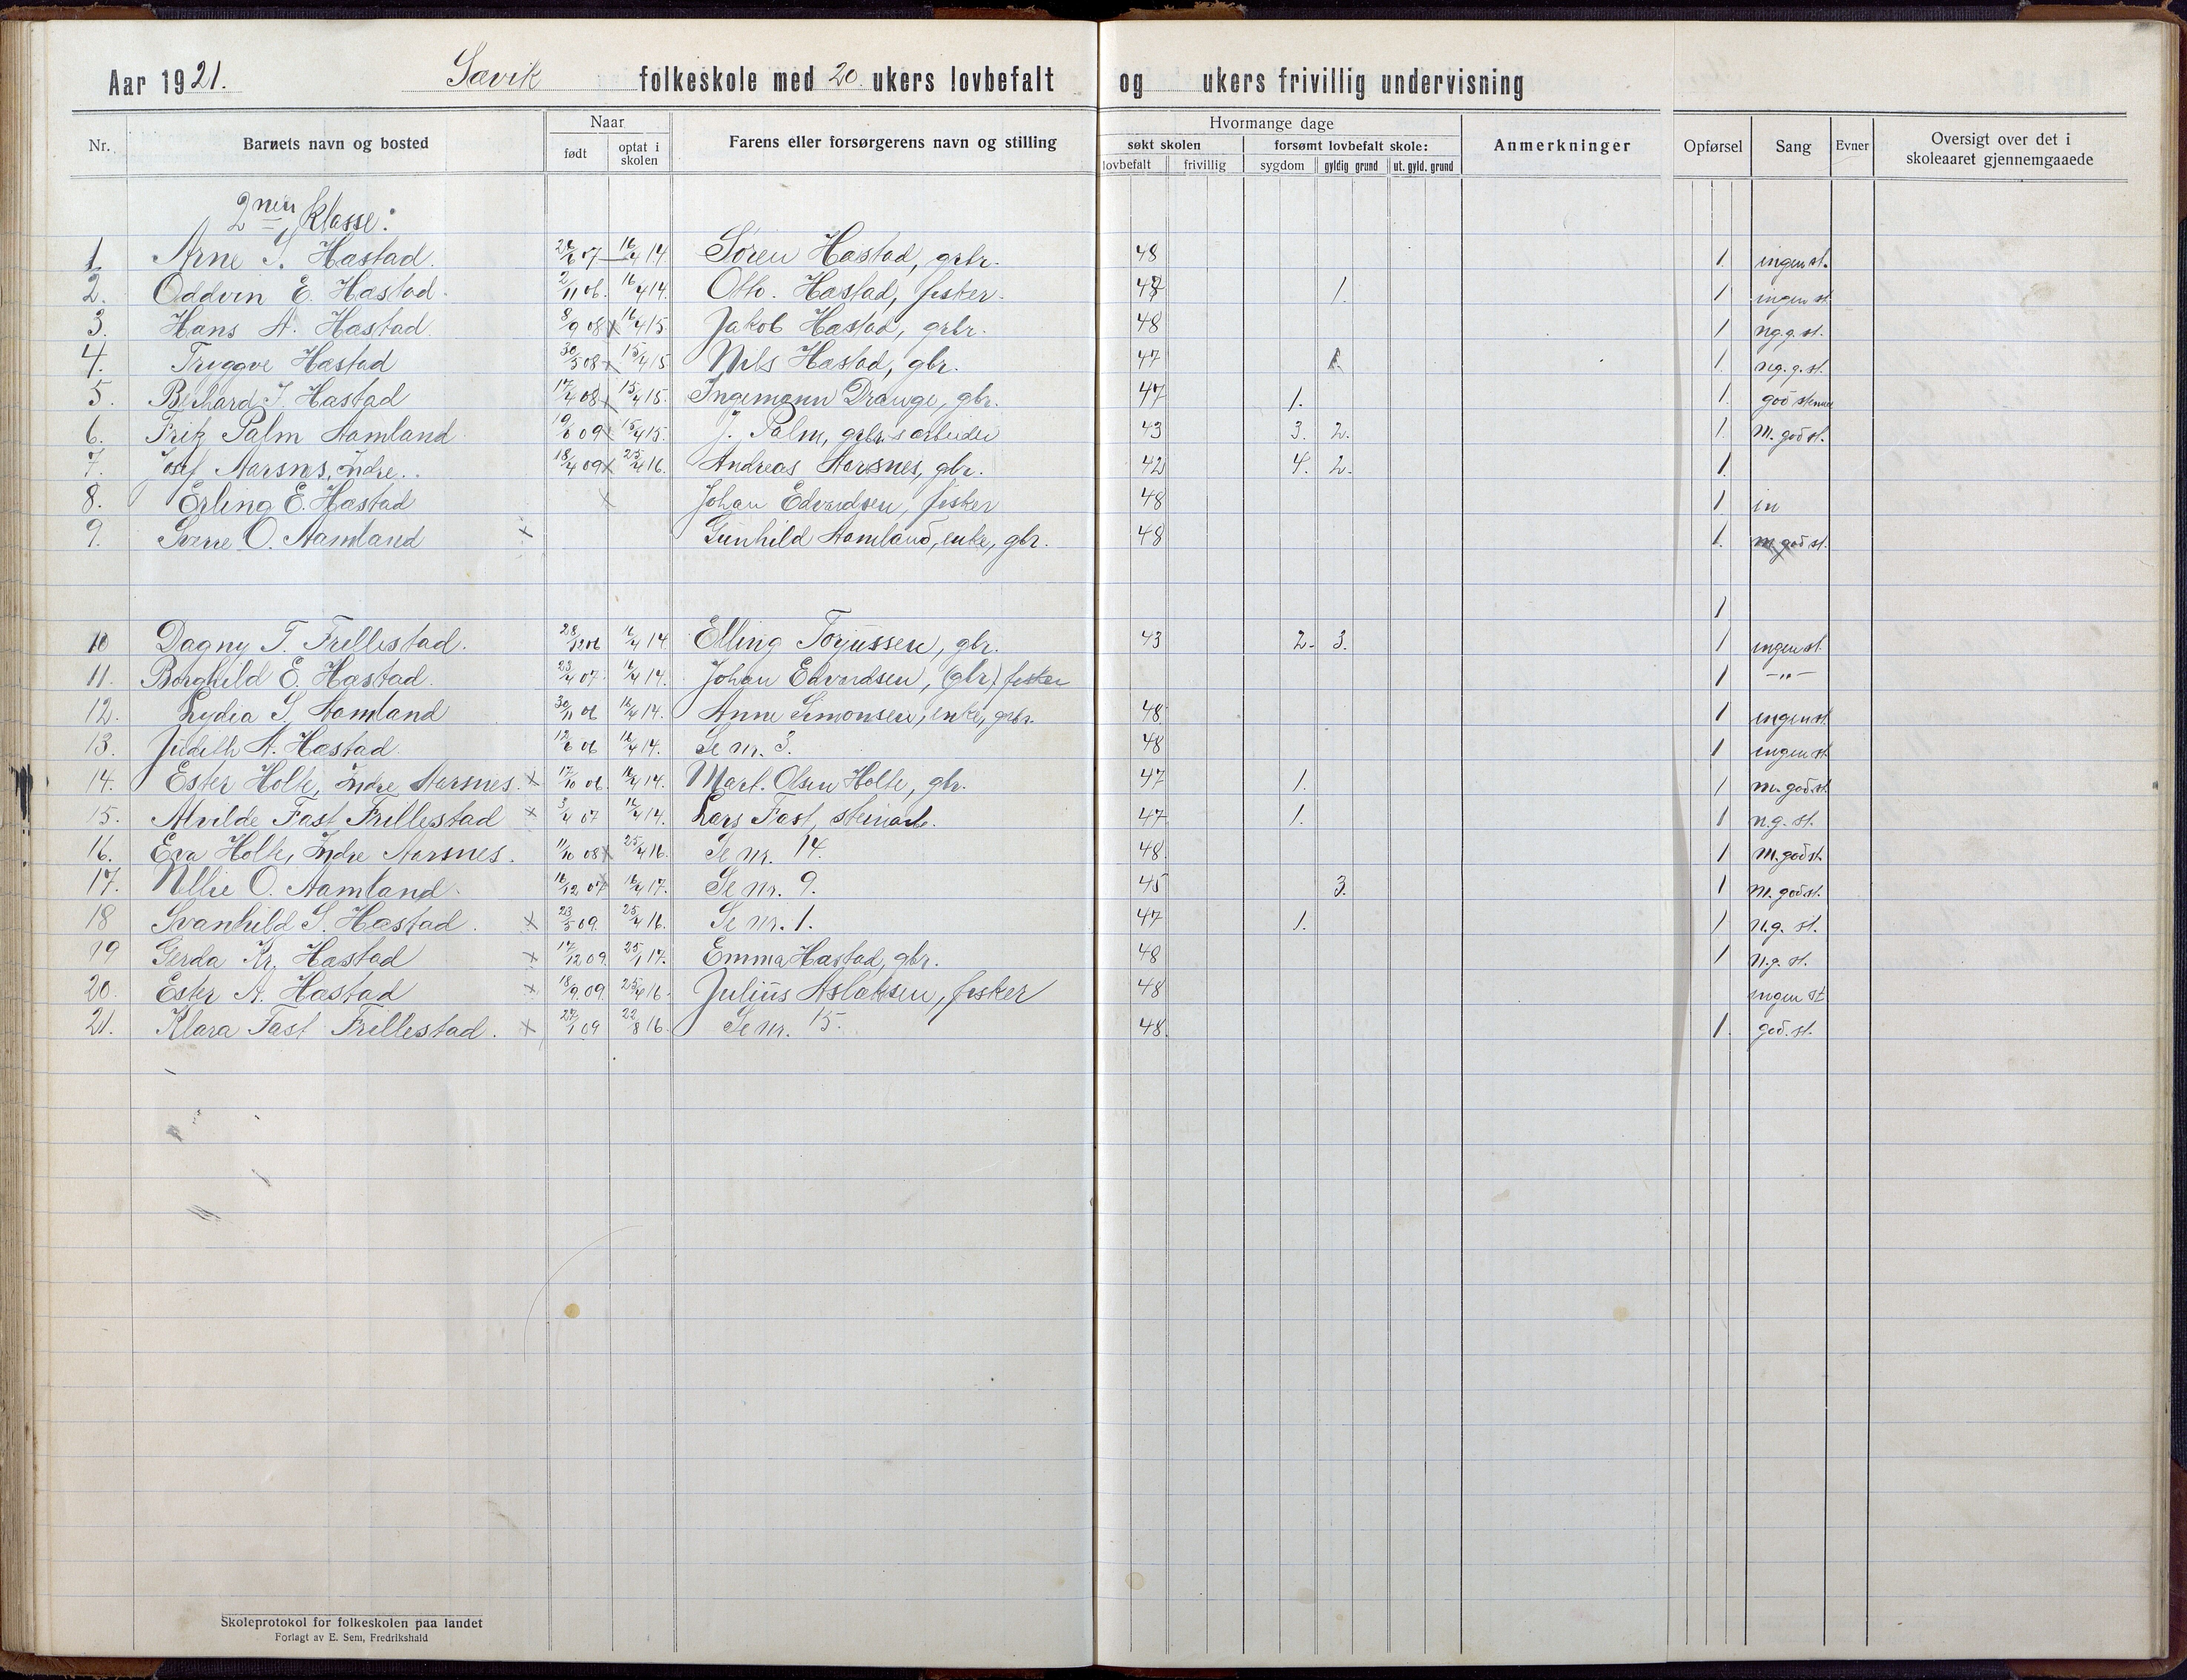 Aar 1921. Savik folkeskole med 20 ukers lovbefalt og ukers frivillig undervisning
Nr. Barnets navn og bosted Naar født optat i skolen Farens eller forsørgerens navn og stilling Hvormange dage søkt skolen lovbefalt frivillig forsømt lovbefalt skole: sygdom gyldig grund ut. gyld. grund Anmerkninger Opførsel Sang Evner Oversigt over det i skoleaaret gjennemgaaede
2nen klasse:
1 Arne S. Hæstad. 16/4 14 Søren Hæstad, grbr. 48 1. ingen st.
2. Oddvin E. Hæstad. 2/11 06. 16/4 14. Otto. Hæstad, fisker. 1. 1 ingen st
3. Hans A. Hæstad. 8/9 08 x 16/4 15. Jakob Hæstad, grbr. 48 1 ng. g. st.
4. Tryggve Hæstad 30/5 08 x 15/4 15 Nels Hæstad, gbr. 47 1. 1. ng. g. st.
5. Berhard J. Hæstad 17/4 08 x 15/4 15. Ingemann Drange, gbr. 47 1. 1. god stemme
6. Fritz Palm Aamland 19/6 09 x 15/4 15. J. Palm, grbr.s arbeider 43 3. 2. 1. M. god st.
7. Josef Aarsnes, Indre.. 18/4 09 x 25/4 16. Andreas Aarsnes, gbr. 42 4. 2. 1.
8. Erling E. Hæstad x Johan Edvardsen, fisker 48 1. in
9. Sverre O. Aamland x Gunhild Aamland, enke, gbr. 48 1. m. god st.
1
10 Dagny T. Trellestad. 28/12 06 16/4 14 Elling Torjussen, gbr. 43 2. 3. 1 ingen st.
11. Borghild E. Hæstad. 23/4 07. 16/4 14. Johan Edvardsen, (gbr) fisker 1 -"-
12. Lydia S. Aamland 30/11 06 16/4 14. Anne Simonsen, enke, grbr. 48. 1 ingen st.
13. Judith A. Hæstad. 12/6 06 16/4 14. Se nr. 3. 48 1 ingen st
14. Ester Holte, Indre Aarsnes. x 17/10 06. 16/4 14. Mart. Olsen Holte, gbr. 47 1. 1 m. god st.
15. Alvilde Fast Trellestad x 3/4 07 16/4 14. Lars Fast, steinarb. 47 1. 1 n.g. st.
16. Eva Holte, Indre Aarsnes. 11/10 08 x 25/4 16. Se nr. 14. 48. 1 M. god st
17. Nellie O. Aamland. 16/12 07 16/4 17. Se nr. 9. 45 3. 1 M. god st.
18 Svanhild S. Hæstad. x 23/5 09. 25/4 16. Se nr. 1. 47 1. 1 n.g. st.
19 Gerda Kr. Hæstad x 17/12 09. 25/1 17. Emma Hæstad, gbr. 48 1 n.g. st.
20. Ester A. Hæstad x 18/9 09. 25/4 16. Julius Aslaksen, fisker 48 ingen st
21. Klara Fast Trellestad. x 27/1 09 22/8 16. Se nr. 15. 48. 1. god. st.
Skoleprotokol for folkeskolen paa landet
Forlagt av E. Sem, Fredrikshald